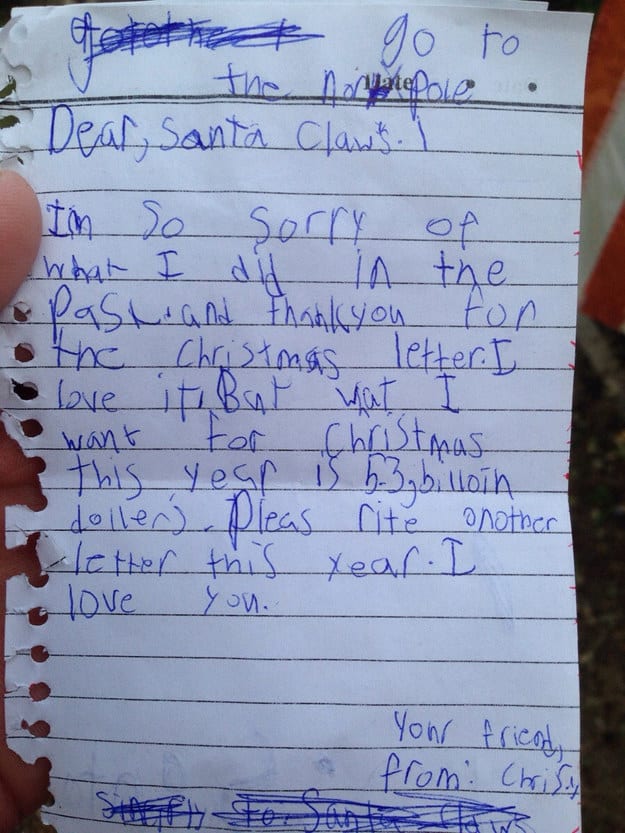 go to
the nor pole
Dear, Santa Claws.
Im so sorry of
what I did in the
Past. and thankyou for
the christmas letter. I
love it, But wat I
want for Christmas
this year is 53, billoin
dollers. Pleas rite another
letter this year. I
love you.
Your friend,
from: Chris
To: Santa Claws